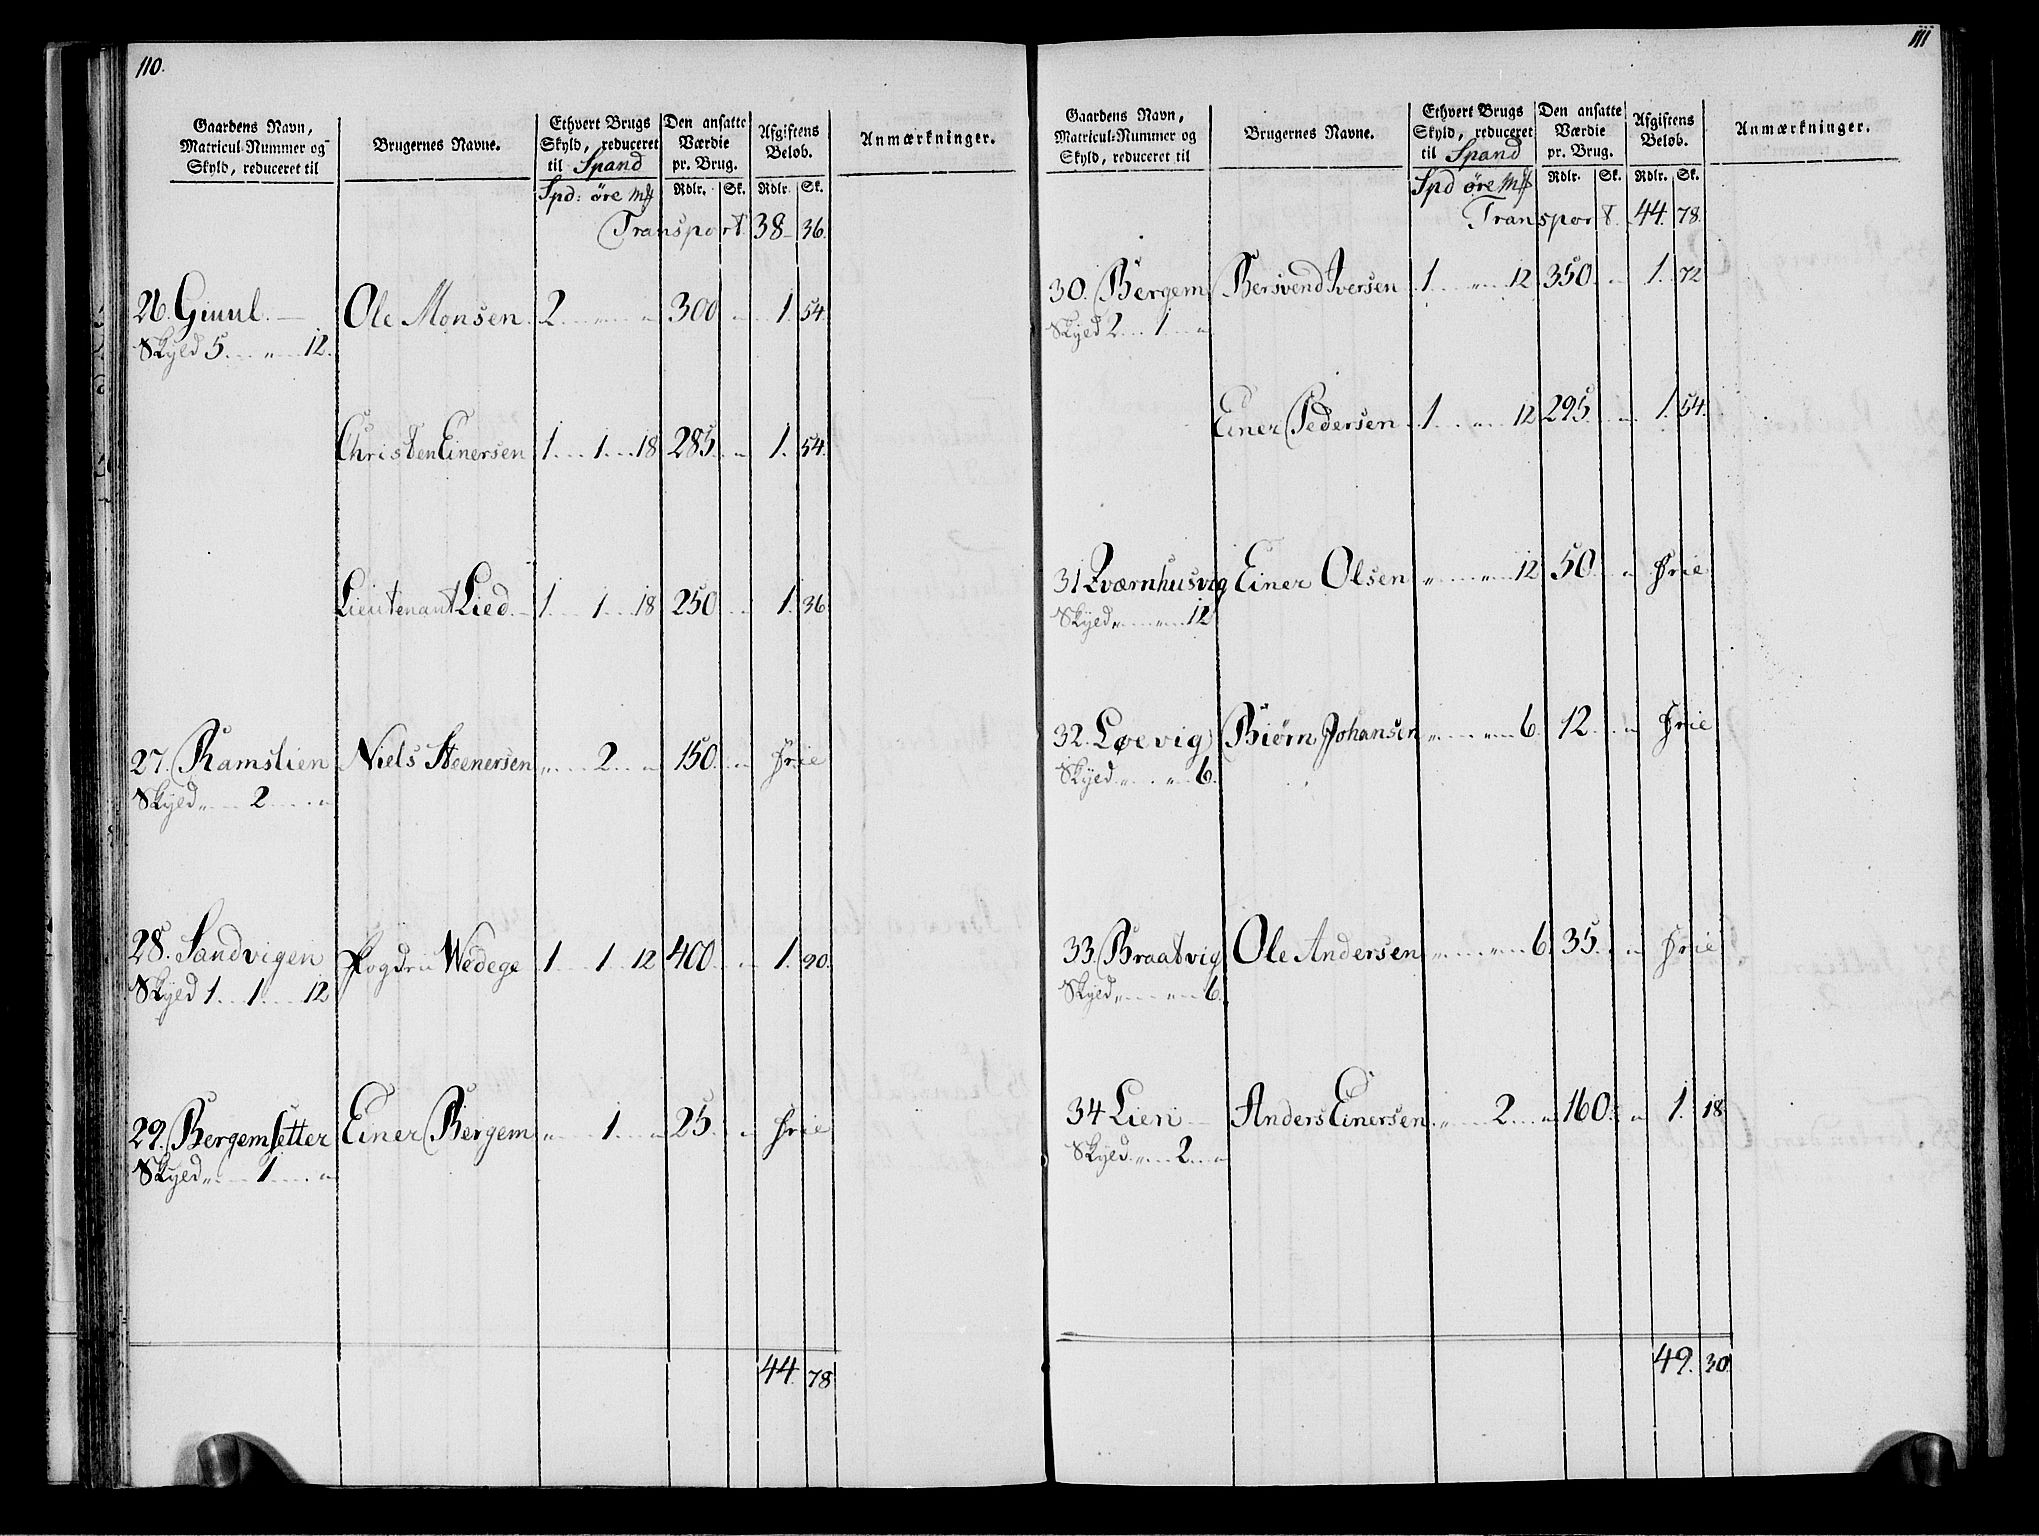 110.
Gaardens Navn, Matricul-Nummer og Skyld, reduceret til | Brugernes Navne. | Ethvert Brugs Skyld, reduceret til Spand | Den ansatte Værdie pr. Brug. | Afgiftens Beløb. | Anmærkninger.
Spd: öre m# | Rdlr. Sk. | Rdlr. Sk.
Transport 38 36.
26. Gimnl. Ole Monsen 2 „ „ 300 „ 1. 54.
Skyld 5. „ 12.
Christen Einersen 1 1 18 285. „ 1. 54.
Lieutenant Lied 1 1 18 250 „ 1. 36
27. Ramslien Niels Steenersen „ 2 „ 150. „ frie
Skyld „ 2 „
28. Sandvigen Fogden Wedege 1 1 12 400 „ 1. 90.
Skyld 1 1 12
29. Bergemsetter Einer Bergem „ 1 „ 25 „ frie
Skyld „ 1 „
44. 78
111
Gaardens Navn, Matricul-Nummer og Skyld, reduceret til | Brugernes Navne. | Ethvert Brugs Skyld, reduceret til Spand | Den ansatte Værdie pr. Brug. | Afgiftens Beløb. | Anmærkninger.
Spd öre m# | Rdlr. Sk. | Rdlr. Sk.
Transport. 44. 78.
30. Bergem Bersvend Iversen 1 „ 12 350. „ 1. 72
Skyld 2 1 „
Einer Pedersen 1 „ 12 295. „ 1. 54.
31 Qværnhusvig Einer Olsen „ „ 12 50. „ frie
Skyld „ „ 12
32. Løevig Biørn Johansen „ „ 6. 12 „ frie
Skyld „ „ 6.
33. Braatvig Ole Andersen „ „ 6. 35. „ frie
Skyld „ „ 6.
34 Lien Anders Einersen „ 2 „ 160. „ 1. 18
Skyld „ 2 „
49. 30.